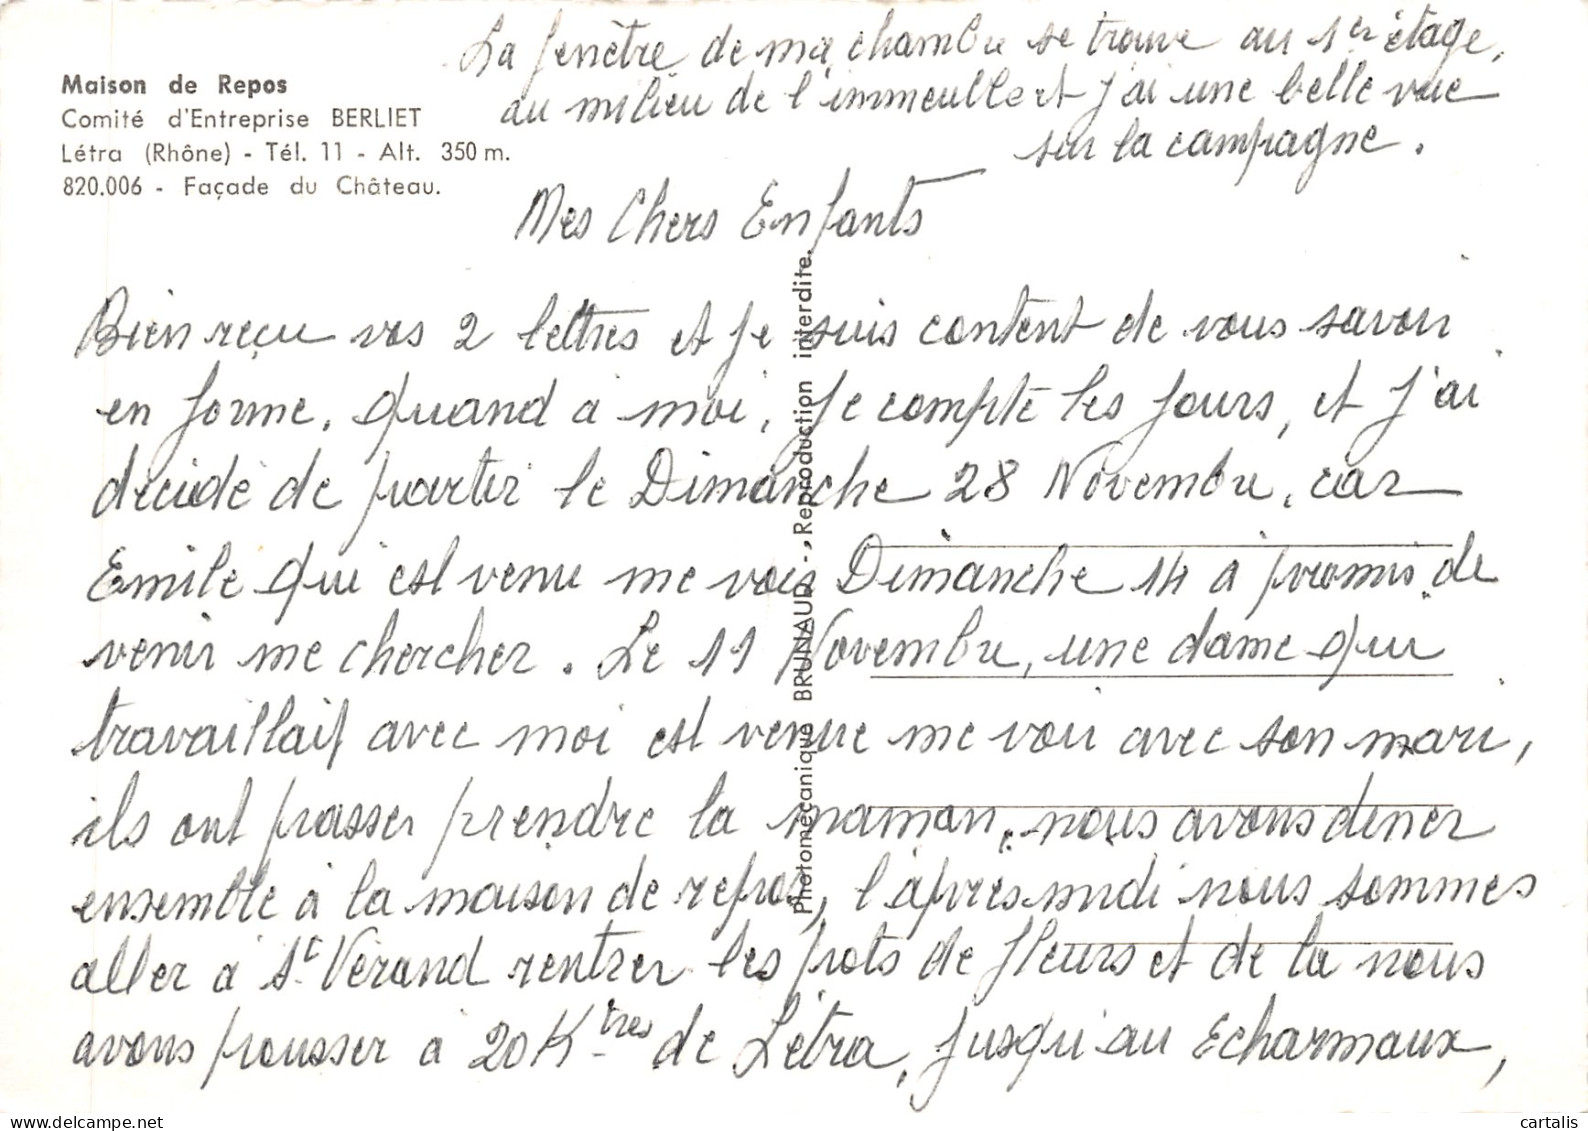 La fenêtre de ma chambre se trouve au 1er étage,
au milieu de l'immeuble et j'ai une belle vue
sur la campagne.
Maison de Repos
Comité d'Entreprise BERLIET
Létra (Rhône) - Tél. 11 - Alt. 350 m.
820.006 - Façade du Château.
Mes Chers Enfants
Bien reçu vos 2 lettres et je suis content de vous savoir
en forme, quand à moi, je compte les jours, et j'ai
décidé de partir le Dimanche 28 Novembre, car
Emile qui est venu me voir Dimanche 14 a promis de
venir me chercher. Le 11 Novembre, une dame qui
travaillait avec moi est venue me voir avec son mari,
ils ont passer prendre la maman, nous avons diner
ensemble à la maison de repos, l'après midi nous sommes
aller à St Vérand rentrer les pots de fleurs et de la nous
avons pousser à 20 Ktres de Létra, jusqu'au Echarmaux,
Photomécanique BRUNAUD - Reproduction interdite.
cartalis
https://www.delcampe.net